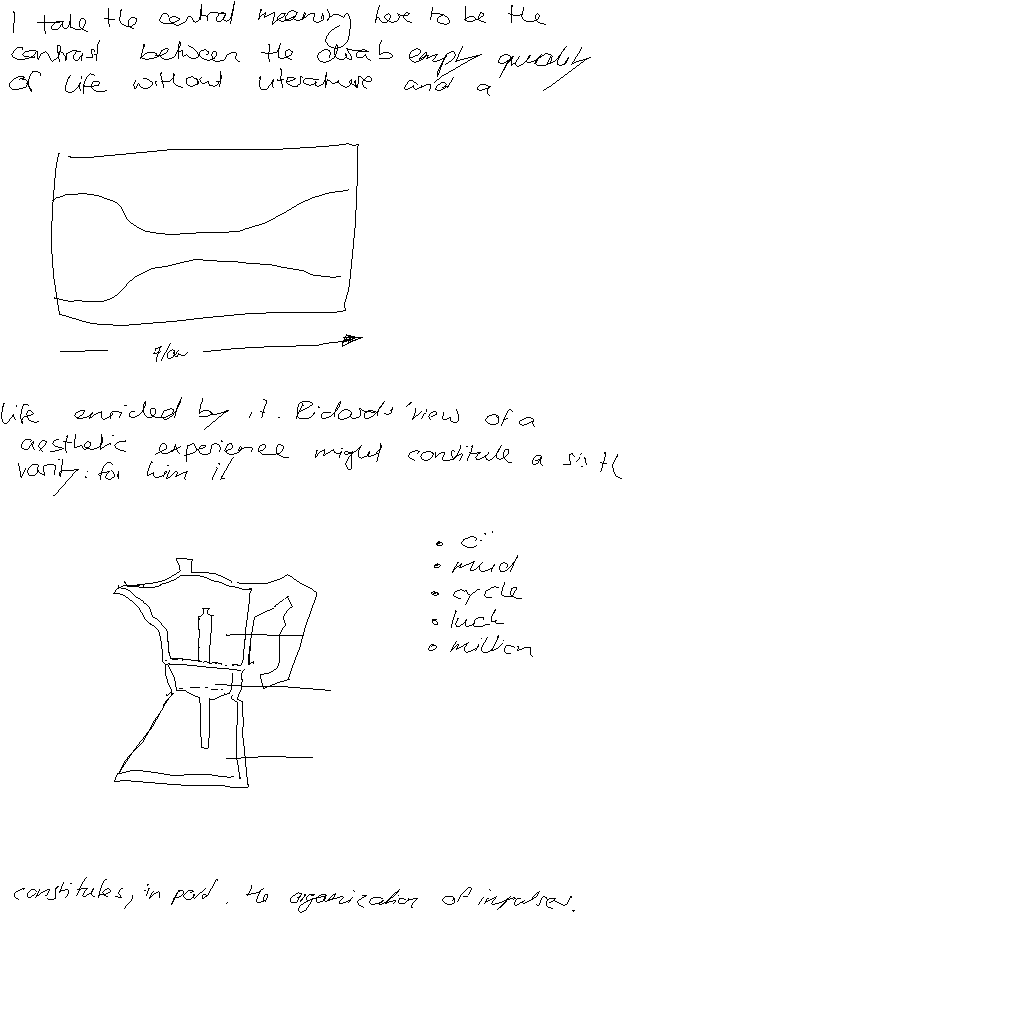 I take the central meaning here to be the
contrast between the drab empty quality
of life without literature and a
Flow
life enriched by it. Richards' view of
aesthetic experience might constitute a sixth
varity: for him it
mud
cycle
luck
million
constitutes, in part, the organization of impulses.